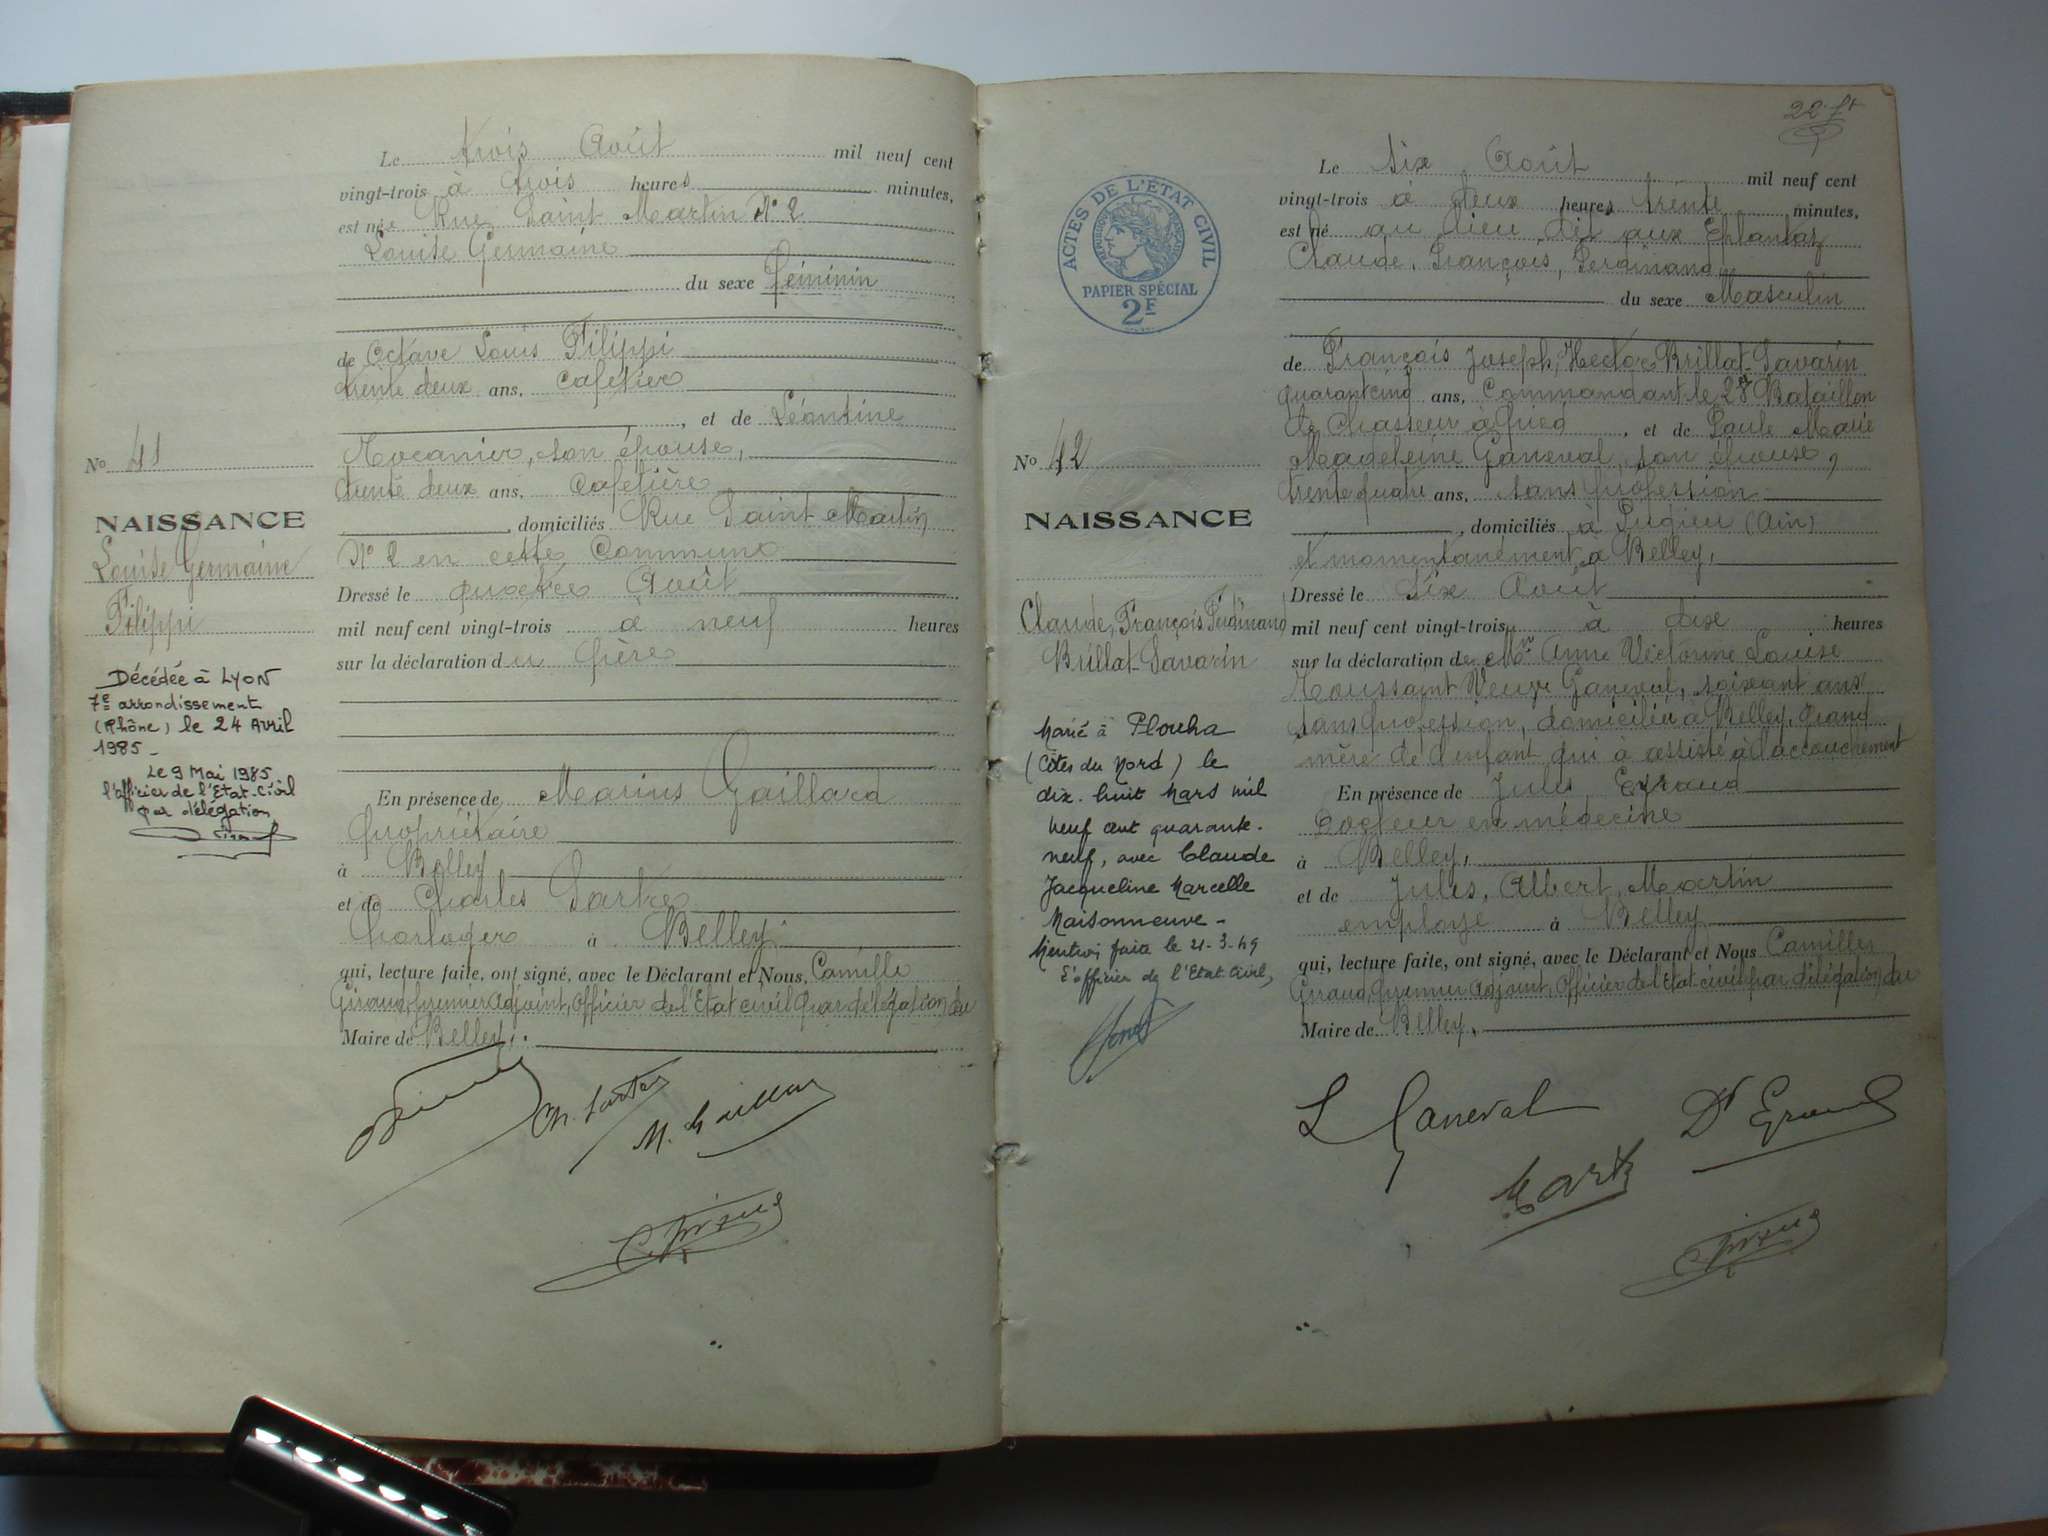 Le trois Août mil neuf cent
vingt-trois à trois heures minutes,
est née Rue Saint Martin N° 2
Louise Germaine
du sexe féminin
de Octave Louis Filippi
trente deux ans, cafétier
, et de Léontine
Mocanier, son épouse,
trente deux ans, cafetière
, domiciliés Rue Saint Martin
N° 2 en cette Commune
Dressé le quatre Août
mil neuf cent vingt-trois à neuf heures
sur la déclaration du père
En présence de Marius Gaillard
propriétaire
à Belley
et de Charles Sartre
horloger à Belley
qui, lecture faite, ont signé, avec le Déclarant et Nous, Camille
Giraud, premier adjoint, Officier de l'Etat civil par délégation du
Maire de Belley,
No 41
NAISSANCE
Louise Germaine
Filippi
Décédée à LYON
7e arrondissement
(Rhône) le 24 Avril
1985 -
Le 9 Mai 1985
l'officier de l'Etat-Civil
par délégation
Ch. Sartre
M. Gaillard
C. Giraud
22
ACTES DE L'ÉTAT CIVIL
RÉPUBLIQUE FRANÇAISE
PAPIER SPÉCIAL
2F
Le six Août mil neuf cent
vingt-trois à deux heures trente minutes,
est né au lieu dit aux
Claude, François, Ferdinand
du sexe Masculin
de François Joseph, Hector Brillat-Savarin
quarant cinq ans, Commandant le Bataillon
de Chasseur à pied , et de Paule Marie
Madeleine Ganeval, son épouse,
trente quatre ans, sans profession
, domiciliés à Pugieu (Ain)
et momentanément à Belley,
Dressé le six Août
mil neuf cent vingt-trois à dix heures
sur la déclaration de Anne Victorine Louise
Toussaint Veuve Ganeval, soixant ans
sans profession, domiciliée à Belley, grand
mère de l'enfant qui à assisté à l'accouchement
En présence de Jules Eyraud
Docteur en médecine
à Belley,
et de Jules, Albert, Martin
employé à Belley
qui, lecture faite, ont signé, avec le Déclarant et Nous Camille
Giraud, premier adjoint, Officier de l'Etat-civil par délégation du
Maire de Belley,
No 42
NAISSANCE
Claude, François Ferdinand
Brillat-Savarin
Marié à Plouha
(Côtes du Nord) le
dix-huit Mars mil
neuf cent quarante-
neuf, avec Claude
Jacqueline Marcelle
Maisonneuve -
Mention faite le 21-3-49
L'officier de l'Etat Civil,
L Ganeval
Dr Eyraud
Martin
C. Giraud